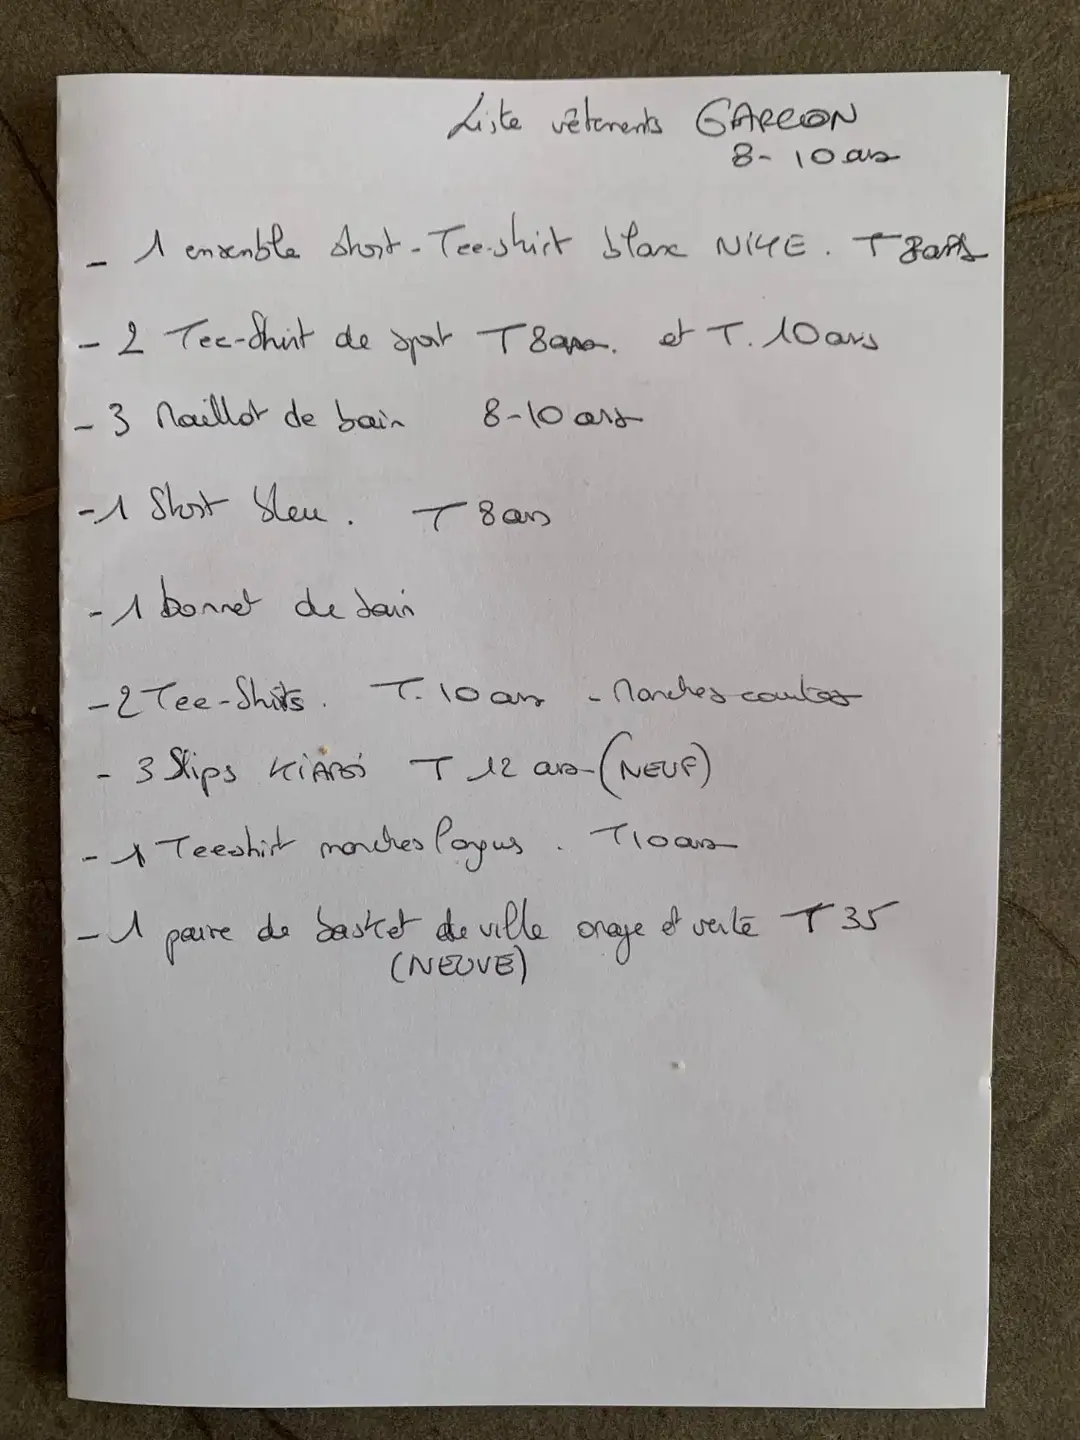 Liste vêtements GARCON
8-10 ans
- 1 ensemble short-Tee-shirt blanc NIKE. T 8ans
- 2 Tee-Shirt de sport T 8ans. et T. 10 ans
- 3 Maillot de bain 8-10 ans
- 1 Short bleu. T 8 ans
- 1 bonnet de bain
- 2 Tee-Shirts. T. 10 ans - Manches courtes
- 3 Slips KiABi T 12 ans (NEUF)
- 1 Teeshirt manches longues. T10 ans
- 1 paire de basket de ville orange et verte T 35
(NEUVE)